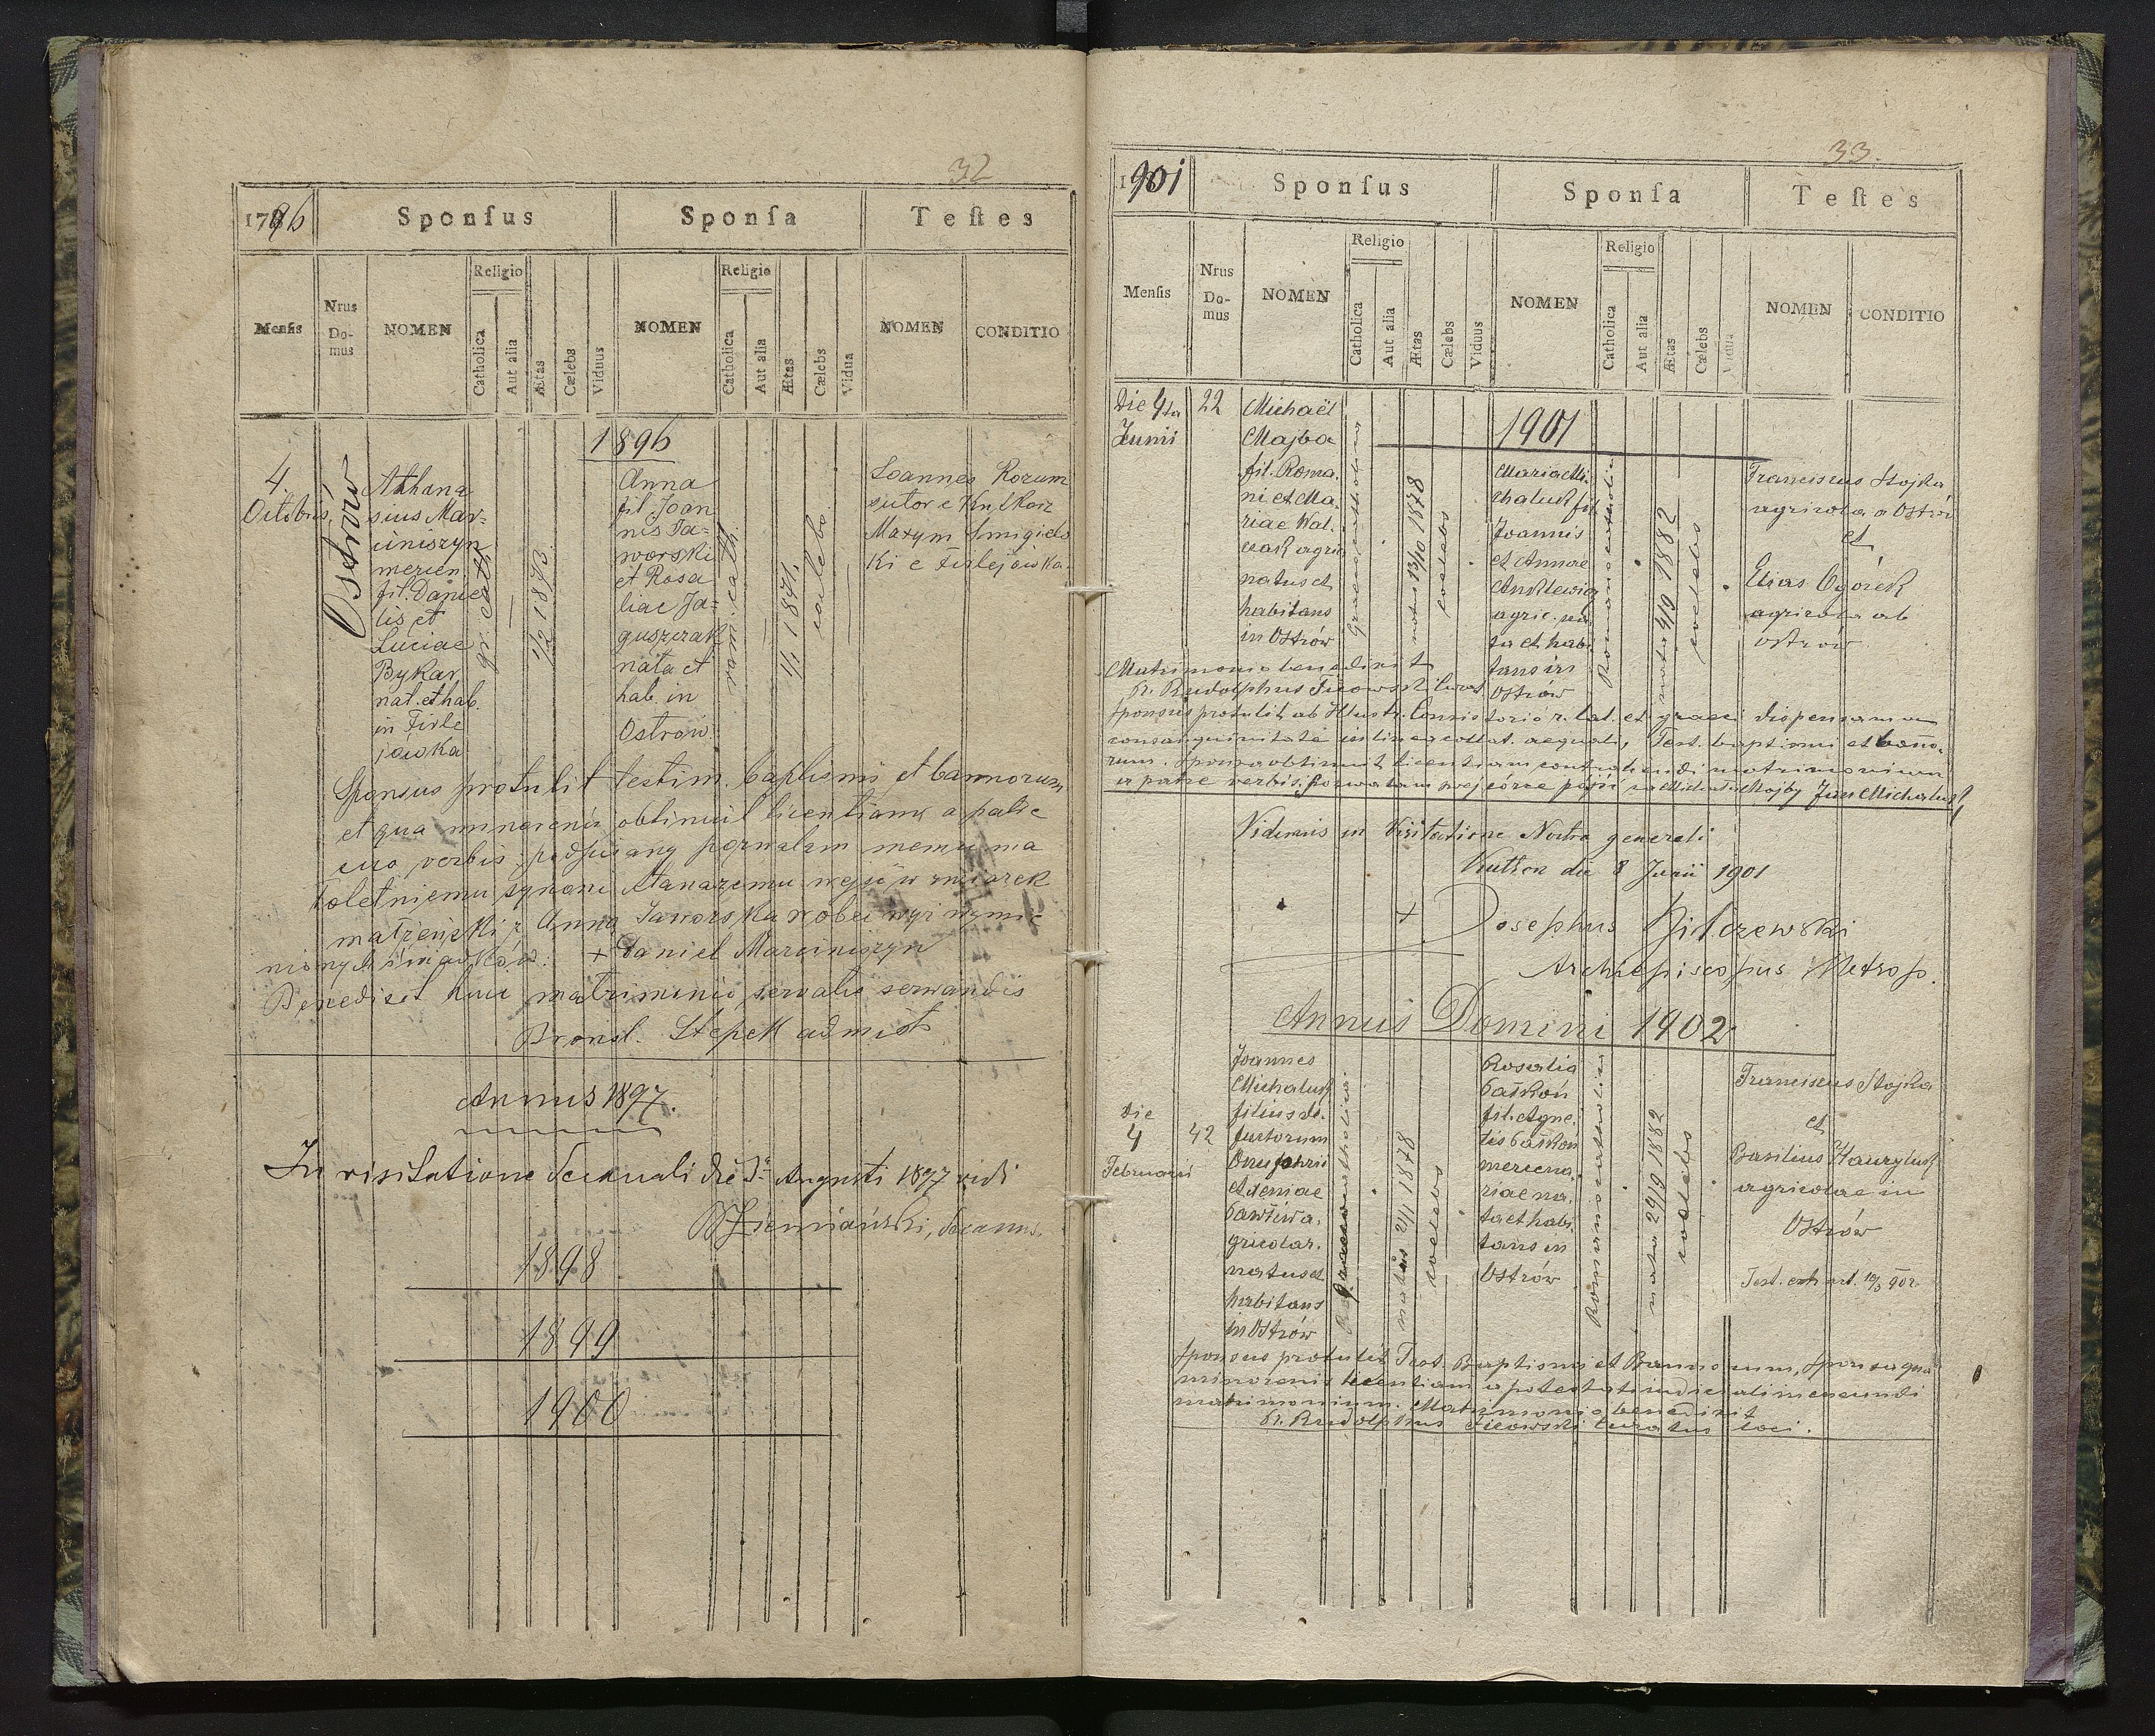 32
1796
Sponſus
Sponſa
Teſtes
Menſis
Nrus Domus
NOMEN
Religio
Catholica
Aut alia
Ætas
Cælebs
Viduus
NOMEN
Religio
Catholica
Aut alia
Ætas
Cælebs
Vidua
NOMEN
CONDITIO
1896
4.
Octobris
Ostrów
Athana
sius Mar=
ciniszyn
mercen.
fil. Danie
lis et
Luciae
Bykar
nat. et hab.
in Firle
jówka
gr. cath.
1/2 1873
Anna
fil. Joan
nis Ja=
worski
et Rosa
liae Ja=
guszczak
nata et
hab. in
Ostrów.
rom. cath.
1/1 1871
caelebs
Joannes Rozum
sutor e Kutkorz
Maxym Smigiels
ki e Firlejówka
Sponsus protulit testim. baptismi et bannorum
et qua minorenis obtinuit licentiam a patre
suo verbis: podpisany pozwalam memu ma
łoletniemu synowi Atanazemu wejść w związek
małżeński z Anną Jaworską wobec wyż wymie
nionych świadków. + Daniel Marciniszyn
Benedixit huic matrimonio servatis servandis
Bronisl. Stepek admist
Annus 1897.
In visitatione decanali die Augusti 1897 vidi
Ziemiański, decanus.
1898
1899
1900
33.
1901
Sponſus
Sponſa
Teſtes
Menſis
Nrus Domus
NOMEN
Religio
Catholica
Aut alia
Ætas
Cælebs
Viduus
NOMEN
Religio
Catholica
Aut alia
Ætas
Cælebs
Vidua
NOMEN
CONDITIO
1901
Die 4ta
Junii
22
Michaël
Majba
fil. Roma.
ni et Ma.
riae Wal.
czak agric
natus et
habitans
in Ostrów
Graeco catholica
natus 13/10 1878
coelebs
Maria Mi
chaluk fil.
Joannis
et Annae
Ankiewicz
agric. na
ta et habi
tans in
Ostrów
Romano catholica
nata 4/9 1882
coelebs
Franciscus Stojka
agricola a Ostrów
et
Elias Ogórek
agricola ab
Ostrów
Matrimonio benedixit
X. Rudolphus Ficowski Curat
Sponsus protulit ab Illustr. Consistorio r. lat. et graeci dispensam a
consanguinitate in linea collat. aequali, Test. baptismi et banno.
rum. Sponsa obtinuit licentiam contrahendi matrimonium
a patre verbis: pozwalam swej córce pójść za Michała Majby Jan Michaluk
Vidimus in Visitatione Nostra generali
Kutkorz die 8 Junii 1901
+ Josephus Bilczewski
Archiepiscopus Metrop.
Annus Domini 1902
Die
4
Februarii
42
Joannes
Michaluk
filius de.
functorum
Onuphrii
et Xeniae
Pawliw a.
gricolar.
natus et
habitans
in Ostrów
Graeco catholica
natus 2/1 1878
coelebs
Rosalia
Bałkon
fil. Agne.
tis Bałkon
mercena.
riae na.
ta et habi.
tans in
Ostrów
Romano catholica
nata 29/9 1882
coelebs
Franciscus Stojka
et
Basilius Hawryluk
agricolae in
Ostrów
Test. exh. 10/3 902
Sponsus protulit Test. Baptismi et Bannorum, sponsa qua
minorenis licentiam a potestati iudiciali ineundi
matrimonium. Matrimonio benedixit
X. Rudolphus Ficowski curatus loci.